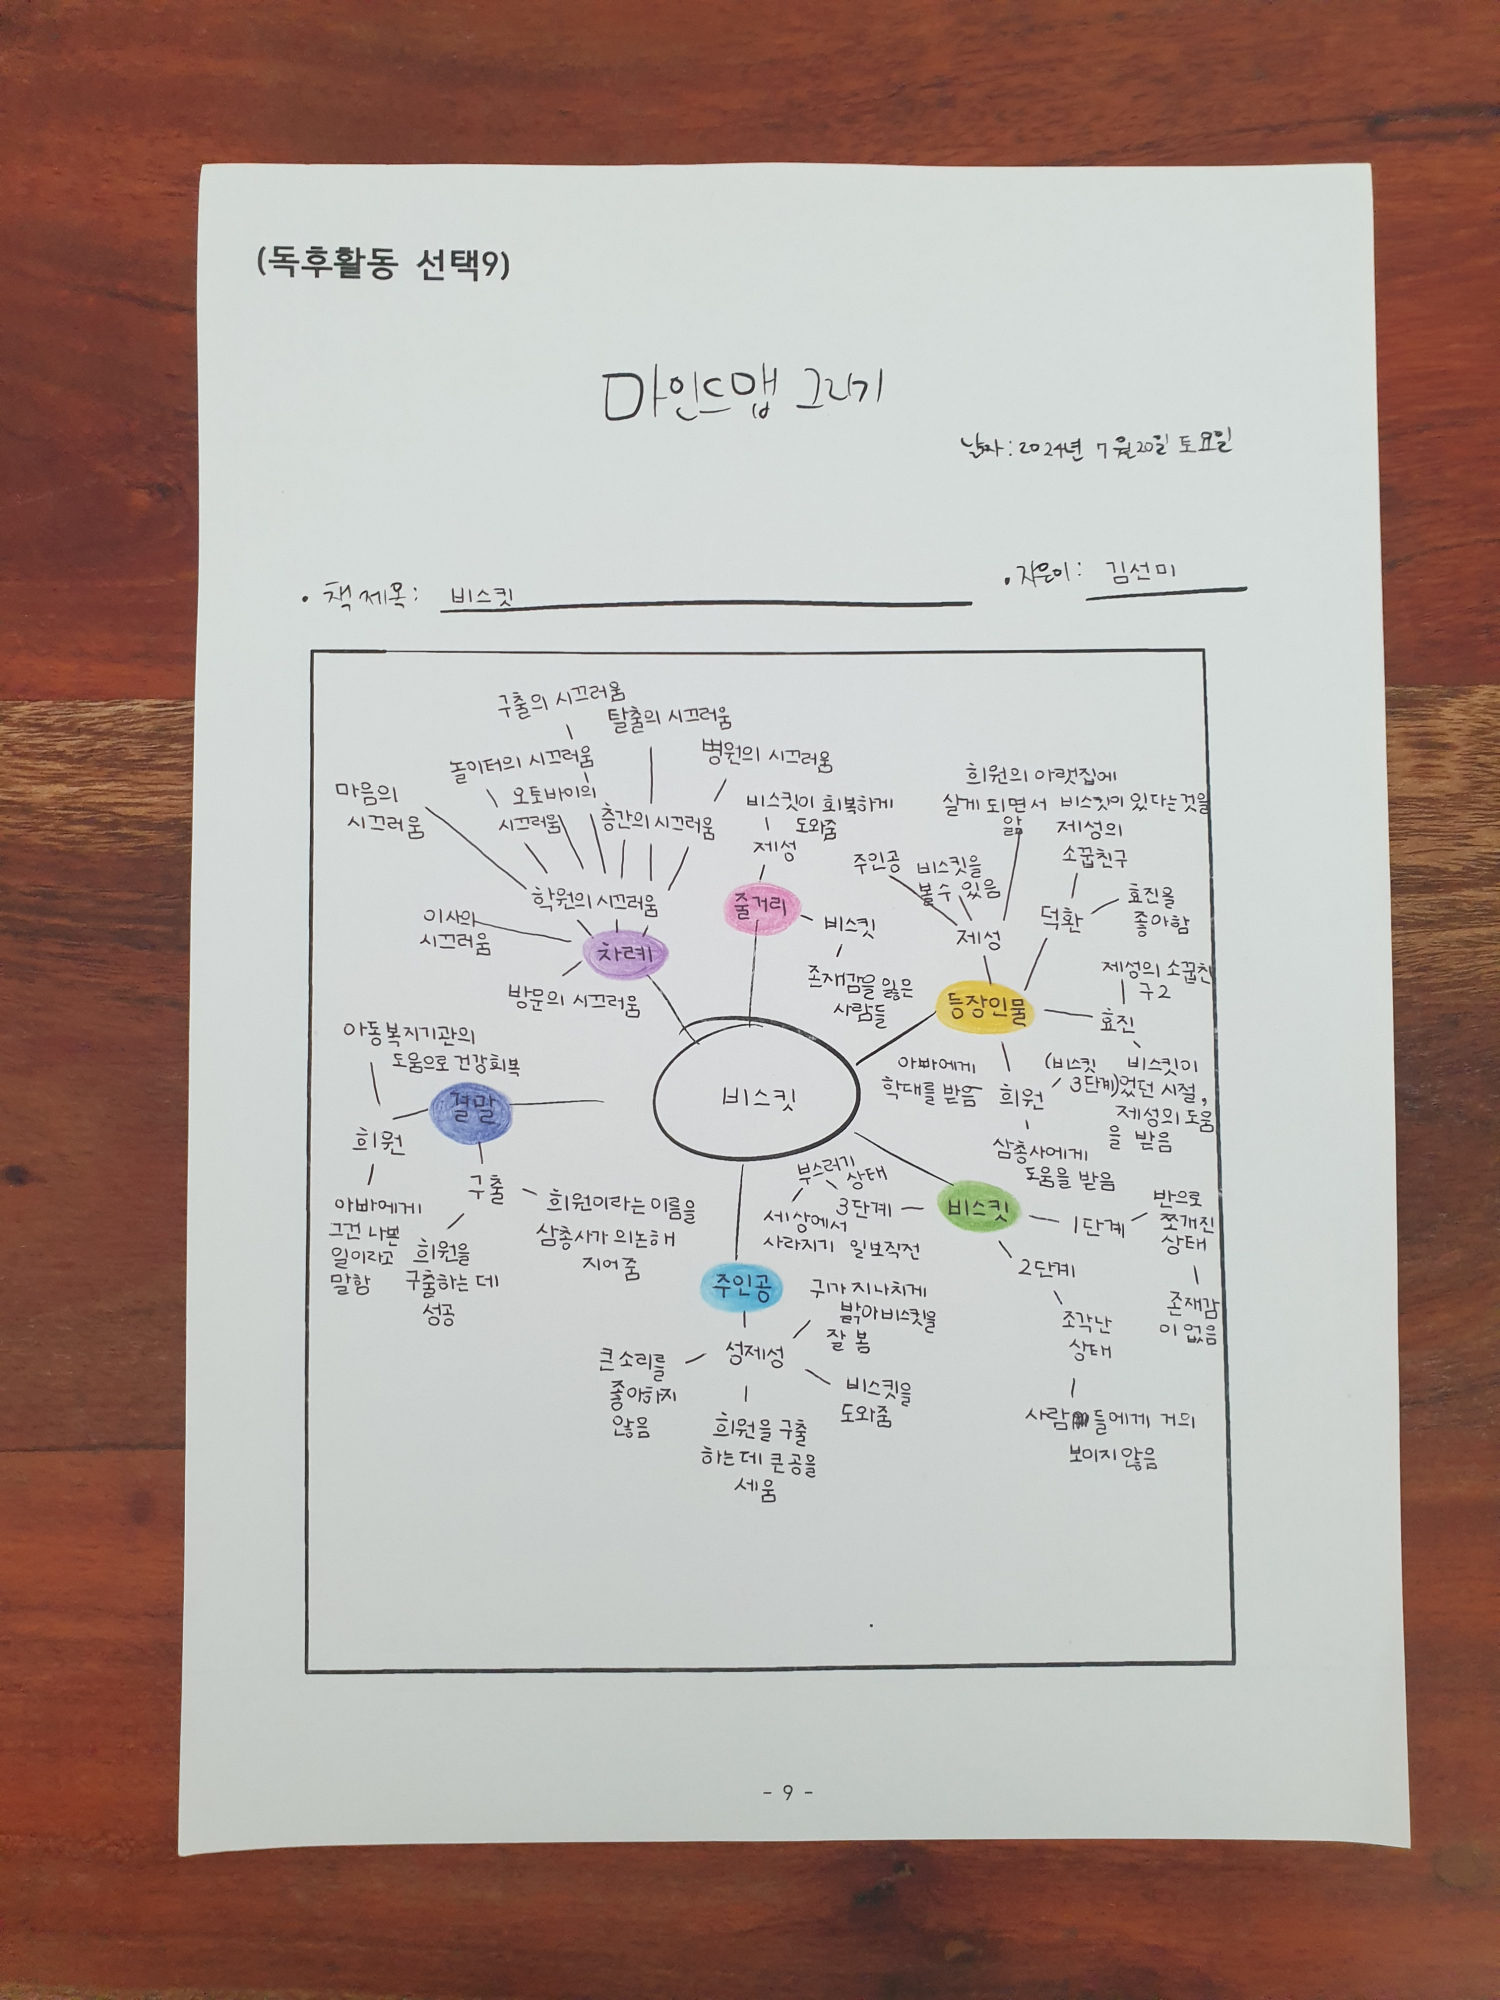 (독후활동 선택9)
마인드맵 그리기
날짜: 2024년 7월20일 토요일
• 책 제목: 비스킷
• 지은이: 김선미
구출의 시끄러움
탈출의 시끄러움
놀이터의 시끄러움
병원의 시끄러움
마음의
시끄러움
오토바이의
시끄러움
층간의 시끄러움
학원의 시끄러움
이사의
시끄러움
차례
방문의 시끄러움
비스킷이 회복하게
도와줌
제성
줄거리
비스킷
존재감을 잃은
사람들
희원의 아랫집에
살게 되면서 비스킷이 있다는것을
앎
주인공
비스킷을
볼 수 있음
제성
제성의
소꿉친구
덕환
효진을
좋아함
등장인물
제성의 소꿉친
구2
효진
(비스킷
3단계)
비스킷이
었던 시절,
제성의 도움
을 받음
아빠에게
학대를 받음
희원
삼총사에게
도움을 받음
아동복지기관의
도움으로 건강회복
결말
희원
아빠에게
그건 나쁜
일이라고
말함
구출
희원을
구출하는 데
성공
희원이라는 이름을
삼총사가 의논해
지어줌
비스킷
부스러기
상태
3단계
세상에서
사라지기 일보직전
비스킷
1단계
반으로
쪼개진
상태
존재감
이 없음
2단계
조각난
상태
사람들에게 거의
보이지 않음
주인공
성제성
귀가 지나치게
밝아 비스킷을
잘 봄
큰 소리를
좋아하지
않음
비스킷을
도와줌
희원을 구출
하는데 큰 공을
세움
- 9 -